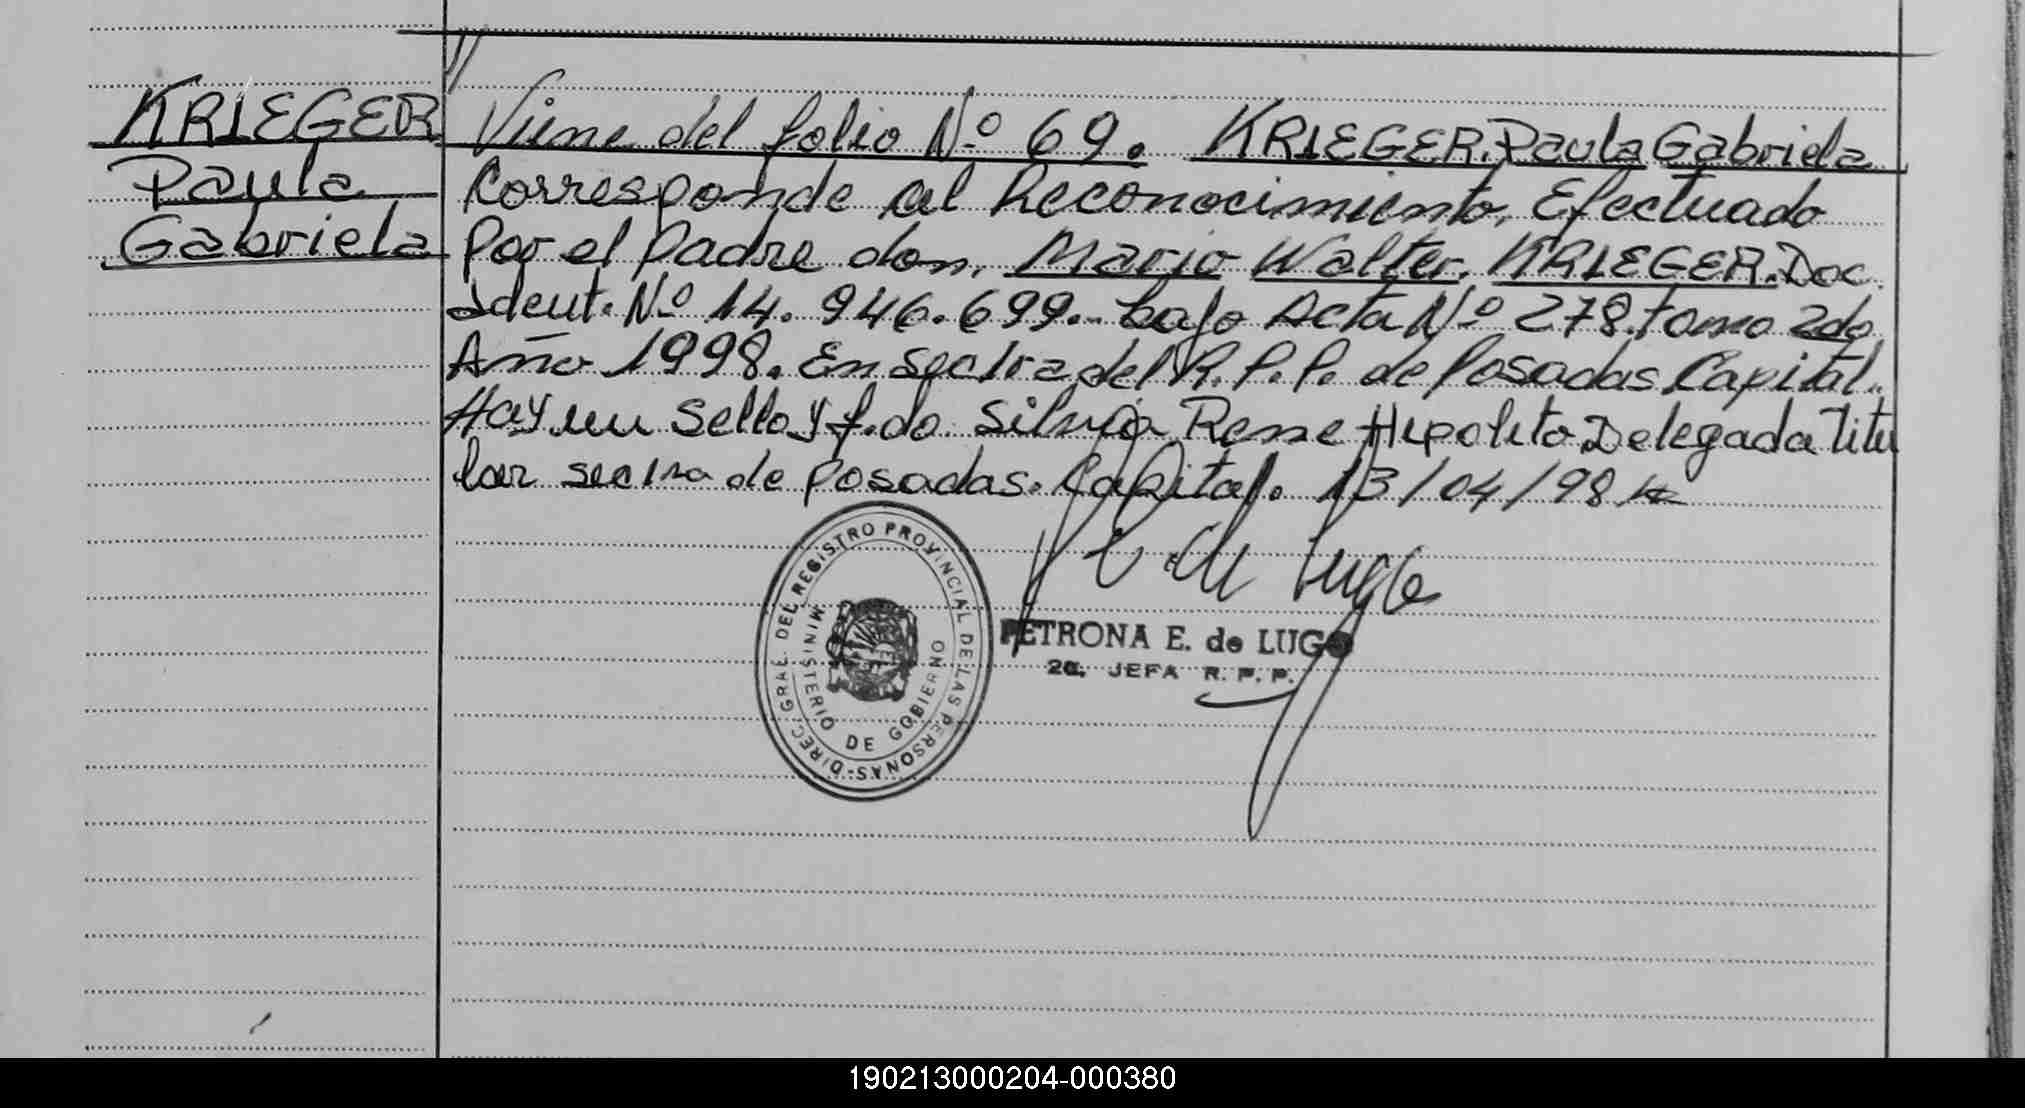 KRIEGER
Paula
Gabriela
//
Viene del folio Nº 69. KRIEGER. Paula Gabriela
Corresponde al Reconocimiento, Efectuado
Por el Padre don, Mario Walter, KRIEGER. Doc.
Ident. Nº 14.946.699.- bajo Acta Nº 278. tomo 2do
Año 1998. En Sec 1ra del R.P.P. de Posadas Capital.
Hay un Sello y f.do. Silvia Rene Hipolito Delegada Titu
lar sec 1ra de Posadas. Capital. 13/04/98
DIREC. GRAL. DEL REGISTRO PROVINCIAL DE LAS PERSONAS-
MINISTERIO DE GOBIERNO
PETRONA E. de LUGO
2a. JEFA R. P. P.
190213000204-000380